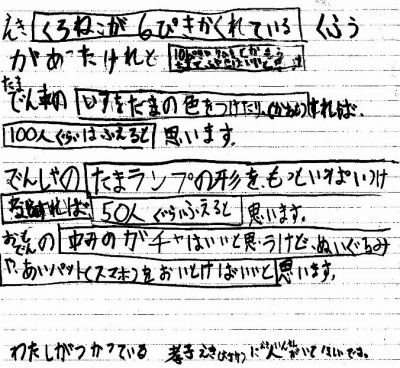 えき くろねこが6ぴきかくれている くふう
があったけれど
たま
でん車の いすをたまの色をつけたり、 すれば、
100人ぐらいはふえると 思います。
でんしゃの たまランプの形を、もっといっぱいつけ
れば 50人ぐらいふえると 思います。
おもでんの 中のガチャはいいと思うけど、ぬいぐるみ
や、あいパット(スマホ)をおいとけばいいと 思います。
わたしがつかっている えき に 人が いてほしいです。